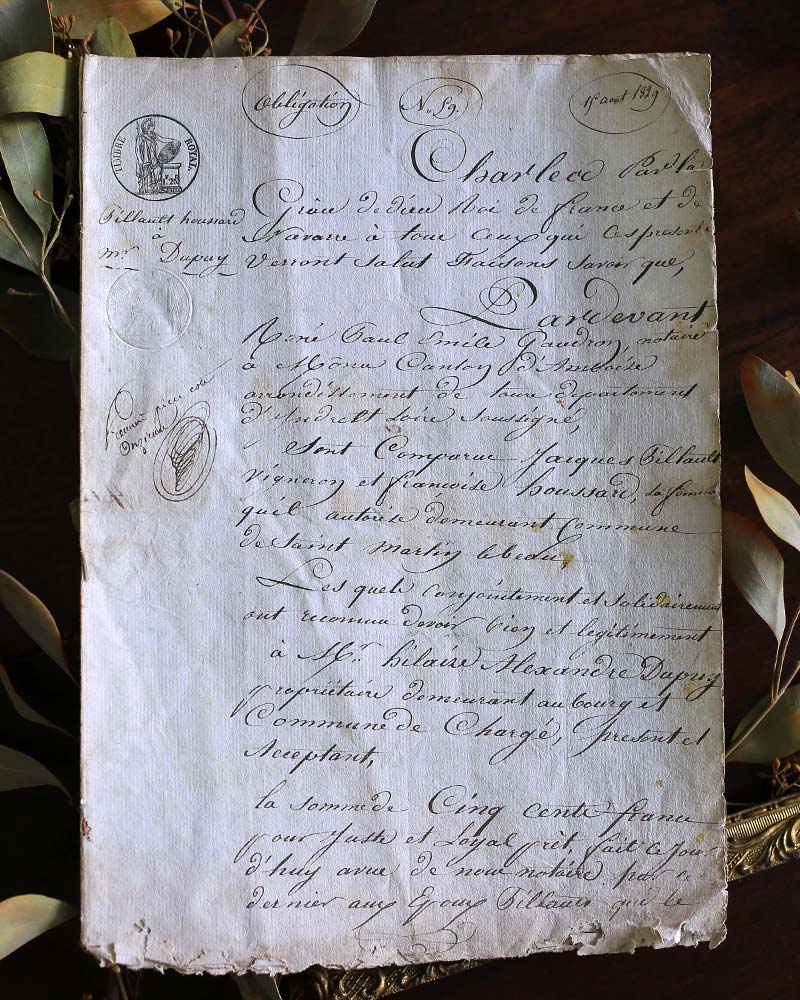 Obligation
N.o 59.
1er août 1829
TIMBRE ROYAL.
Charles Par la
Grâce de dieu Roi de france et de
Navarre à tous Ceux qui Ces presentes
Verront Salut Faisons Savoir que,
Tillault houssard
à
mr. Dupuy
Pardevant
René Paul Emile Gaudron, notaire
à Canton d'Amboise
arrondissement de tours département
d'Indre et Loire Soussigné,
Premiere piece cote
onzieme
Sont Comparus Jacques Tillault
Vigneron et françoise houssard, sa femme
quil autorise demeurant Commune
de Saint Martin le beau,
Les quels Conjointement et Solidairement
ont reconnu devoir bien et legitimement
à Mr. hilaire Alexandre Dupuy
propriétaire demeurant au bourg et
Commune de Chargé, present et
Acceptant,
la somme de Cinq cents francs
pour Juste et Loyal prêt, fait Ce Jour
d'huy a vue de nous notaire par ce
dernier aux Epoux Tillault qui le